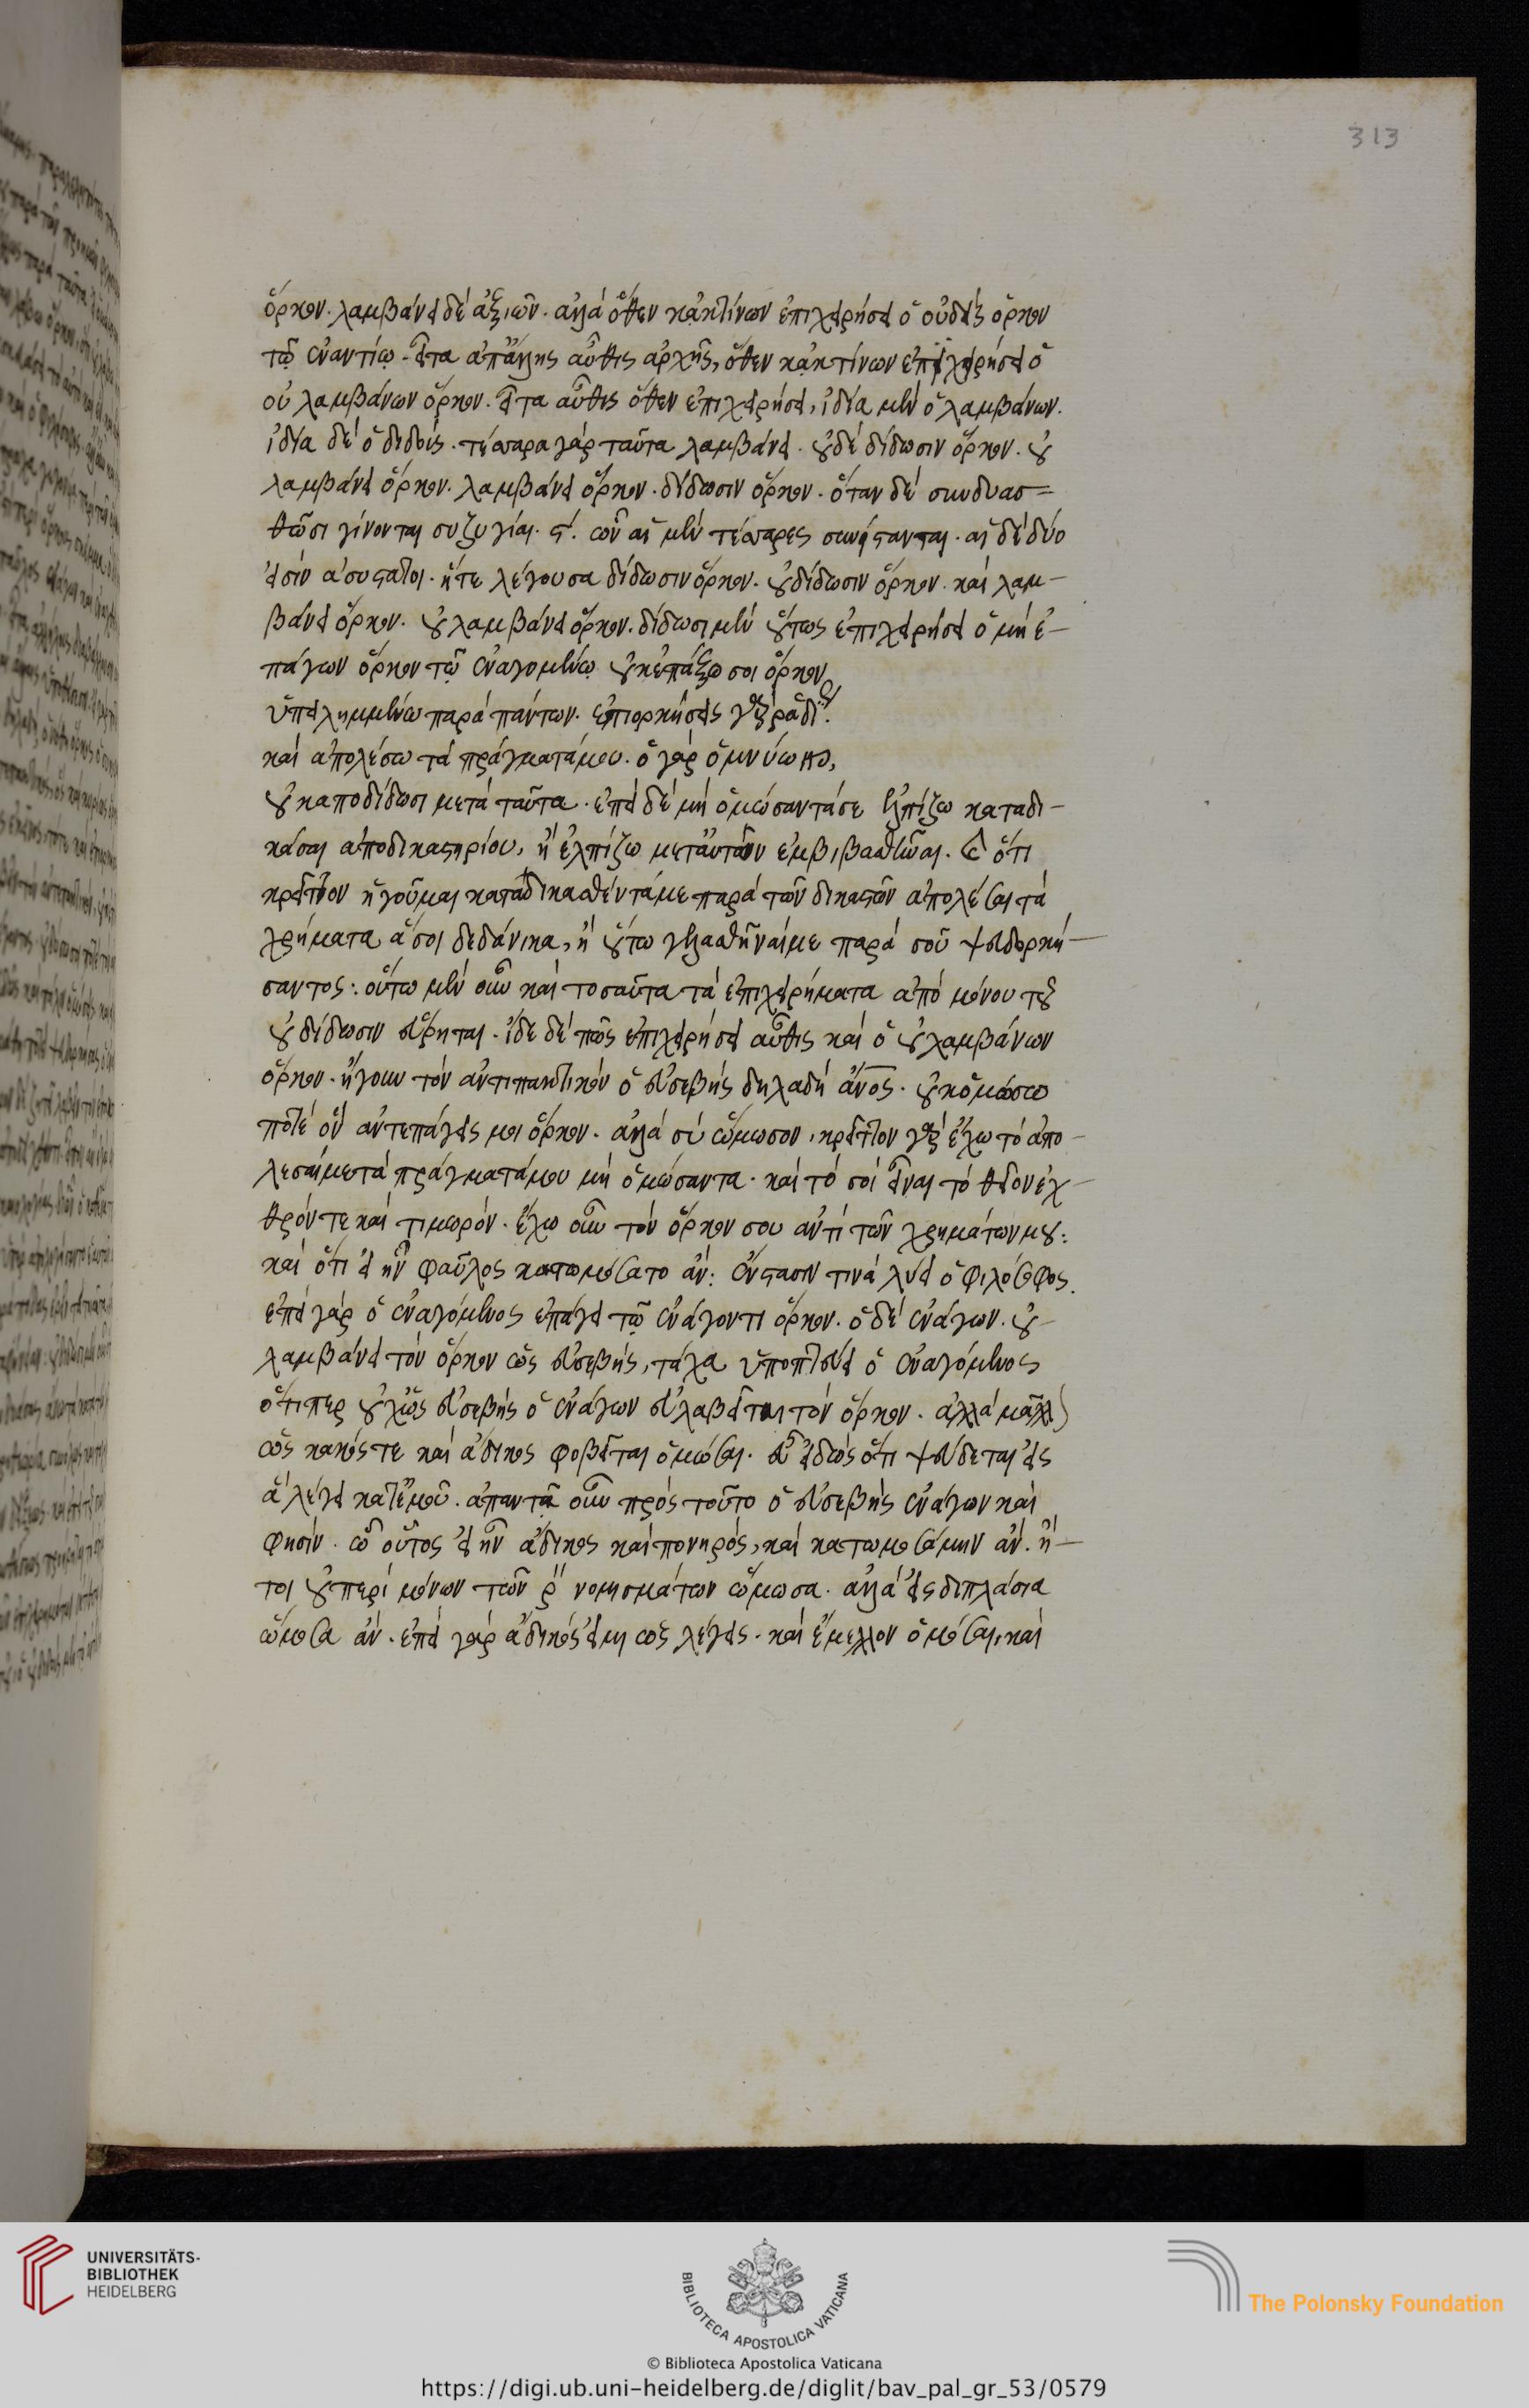 313
ὅρκον. λαμβάνει δὲ ἀξιῶν. ἀλλὰ ὅθεν κἀκτίνων ἐπιχειρήσει ὁ οὐδεὶς ὅρκον
τῷ ἐναντίῳ. εἶτα ἀπἄλλης αὖθις ἀρχῆς, ὅθεν κἀκτίνων ἐπιχειρήσει ὁ
οὐ λαμβάνων ὅρκον. εἶτα αὖθις ὅθεν ἐπιχειρήσει, ἰδία μὲν ὁ λαμβάνων.
ἰδία δὲ ὁ διδούς. τέσσαρα γὰρ ταῦτα λαμβάνει. οὐδὲ δίδωσιν ὅρκον. οὐ
λαμβάνει ὅρκον. λαμβάνει ὅρκον. δίδωσιν ὅρκον. ὅταν δὲ συνδυασ=
θῶσι γίνονται συζυγίαι. ϛ΄. ὧν αἱ μὲν τέσσαρες συνίστανται. αἱ δὲ δύο
εἰσὶν ἀσύστατοι. ἥτε λέγουσα δίδωσιν ὅρκον. οὐ δίδωσιν ὅρκον. καὶ λαμ-
βάνει ὅρκον. οὐ λαμβάνει ὅρκον. δίδωσι μὲν οὕτως ἐπιχειρήσει ὁ μὴ ἐ-
πάγων ὅρκον τῷ ἐναγομένῳ οὐκ ἐπάξω σοι ὅρκον
ὑπειλημμένω παρὰ πάντων. ἐπιορκήσεις γὰρ ῥαδί.
καὶ ἀπολέσω τὰ πράγματά μου. ὁ γὰρ ὀμνύων,
οὐκ ἀποδίδωσι μετὰ ταῦτα. ἐπεὶ δὲ μὴ ὀμόσαντά σε ἐλπίζω καταδι-
κάσαι ἀπὸ δικαστηρίου, ἢ ἐλπίζω μεταυτῶν ἐμβιβασθῶσαι. καὶ ὅτι
κρεῖττον ἡγοῦμαι καταδικασθέντά με παρὰ τῶν δικαστῶν ἀπολέσαι τὰ
χρήματα ἅ σοι δεδάνικα, ἢ οὕτω γελασθῆναί με παρὰ σοῦ ψευδορκή-
σαντος: οὕτω μὲν οὖν καὶ τοσαῦτα τὰ ἐπιχειρήματα ἀπὸ μόνου τοῦ
οὐ δίδωσιν εὕρηται. ἴδε δὲ πῶς ἐπιχειρήσει αὖθις καὶ ὁ οὐ λαμβάνων
ὅρκον. ἤγουν τὸν ἀντεπακτικὸν ὁ εὐσεβὴς δηλαδὴ ἄνος. οὐκ ὀμόσω
ποτὲ ὃν ἀντεπάγεις μοι ὅρκον. ἀλλὰ σὺ ὤμωσον, κρεῖττον γὰρ ἔχω τὸ ἀπο-
λέσαι με τὰ πράγματά μου μὴ ὀμόσαντα. καὶ τὸ σοὶ εἶναι τὸ θεῖον ἐχ-
θρόν τε καὶ τιμωρόν. ἔχω οὖν τὸν ὅρκον σου ἀντὶ τῶν χρημάτων μου:
καὶ ὅτι εἰ ἦν φαῦλος κατωμόσατο ἄν: ἔνστασίν τινα λύει ὁ φιλόσοφος.
ἐπεὶ γὰρ ὁ ἐναγόμενος ἐπάγει τῷ ἐνάγοντι ὅρκον. ὁ δὲ ἐνάγων. οὐ-
λαμβάνει τὸν ὅρκον ὡς εὐσεβής, τάχα ὑποπτεύει ὁ ἐναγόμενος
ὅτιπερ οὐχ ὡς εὐσεβὴς ὁ ἐνάγων εὐλαβεῖται τὸν ὅρκον. ἀλλὰ μᾶλλ
ὡς κακός τε καὶ ἄδικος φοβεῖται ὀμόσαι. εὖ εἰδὼς ὅτι ψεύδεται εἰς
ἃ λέγει κατ ἐμοῦ. ἀπαντᾷ οὖν πρὸς τοῦτο ὁ εὐσεβὴς ἐνάγων καὶ
φησίν. ὦ οὗτος εἰ ἦν ἄδικος καὶ πονηρός, καὶ κατωμοσάμην ἄν. ἤ-
τοι οὐ περὶ μόνων τῶν ρ΄ νομισμάτων ὤμωσα. ἀλλὰ εἰς διπλάσια
ὤμοσα ἄν. ἐπεὶ γὰρ ἄδικός εἰμι ὡς λέγεις. καὶ ἔμελλον ὀμόσαι, καὶ
UNIVERSITÄTS-
BIBLIOTHEK
HEIDELBERG
BIBLIOTECA APOSTOLICA VATICANA
The Polonsky Foundation
© Biblioteca Apostolica Vaticana
https://digi.ub.uni-heidelberg.de/diglit/bav_pal_gr_53/0579